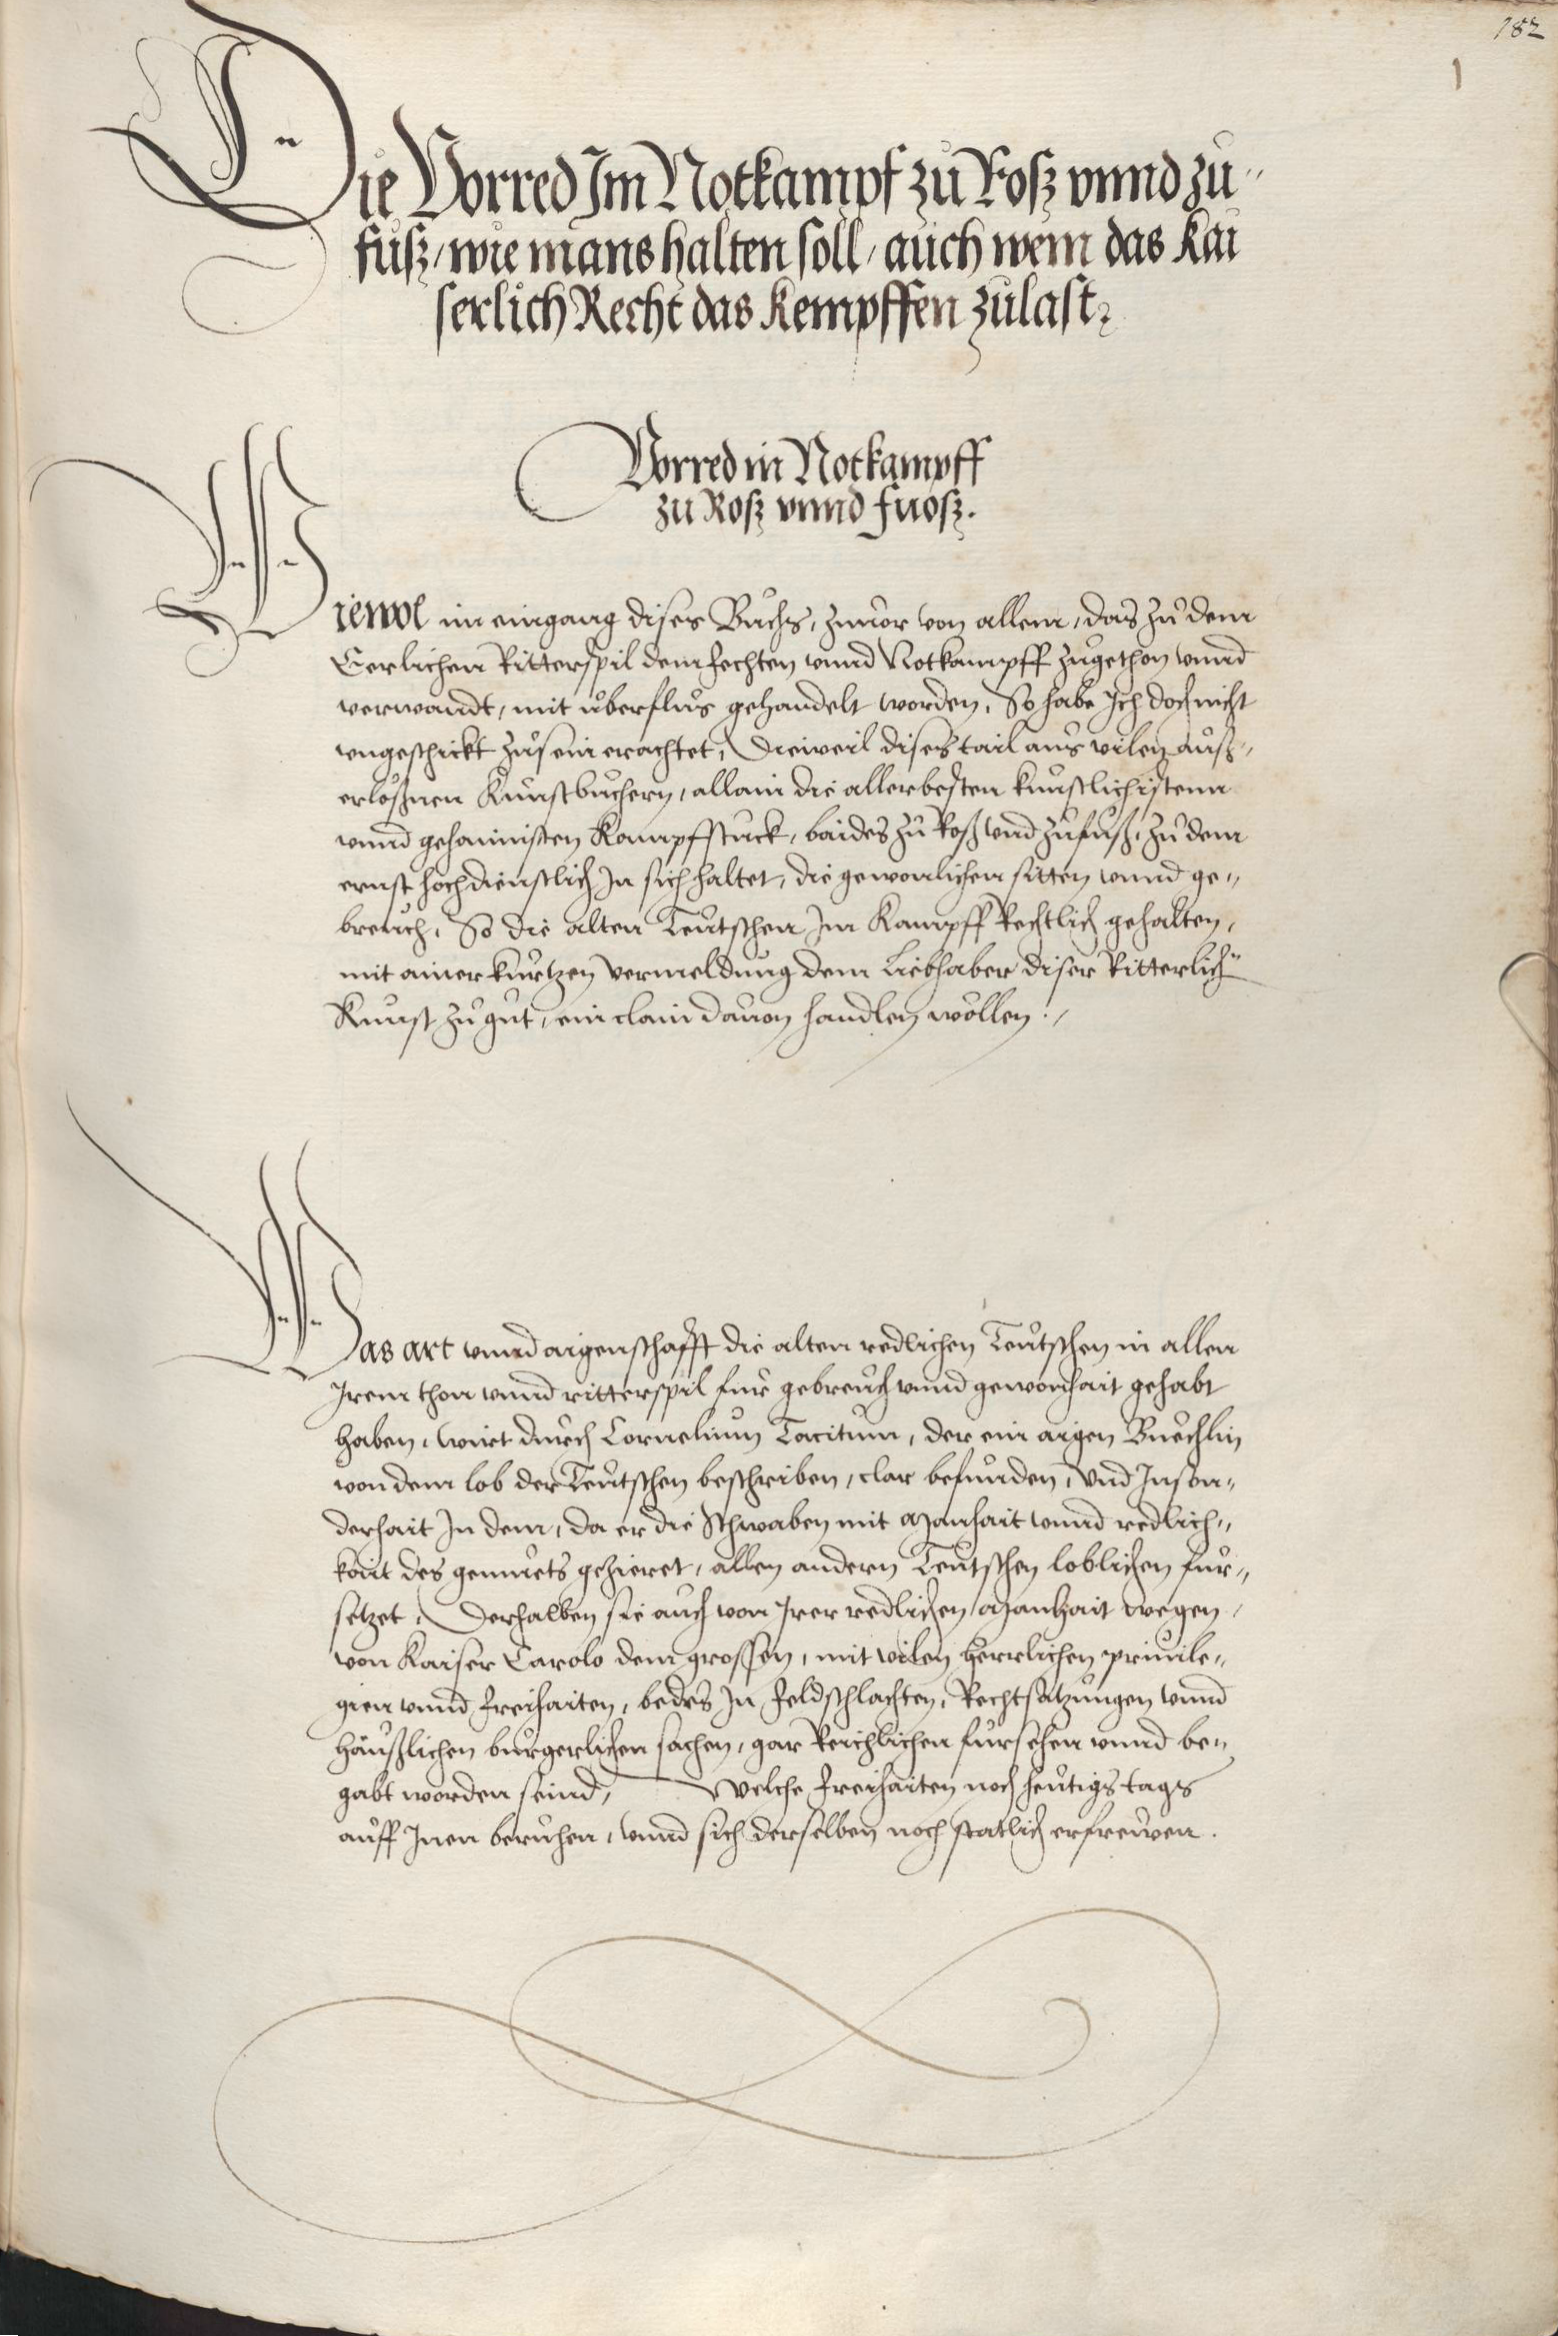 182
1
Die Vorred Im Notkampf zů Roß vnnd zu„
fůß, wie mans halten soll, auch wem das Kai
serlich Recht das Kempffen zůlast.
Vorred in Notkampff
zu Roß vnnd fuoß.
Wiewol im eingang dises Bůchs, zuuor von allem, das zů dem
Eerlichen Ritterspil dem fechten vnnd Notkampff zůgethon vnnd
verwandt, mit überflus gehandelt worden, So habe Ich doch nicht
vngeschickt zůsein erachtet, Dieweil dises tail aus vilen auß„
erleßnen Kunstbüchern, allain die allerbesten kunstlichistenn
vnnd gehaimisten Kampfstuck, baides zů Roß vnd zůfůß, zů dem
ernst hochdienstlich In sich haltet, die gewonlichen sitten vnnd ge„
breuch, So die alten Teutschen Im Kampff Rechtlich gehalten,
mit ainer kurtzen vermeldung dem Liebhaber diser Ritterlichn̄
Kunst zů gůt, ein clain dauon handlen wöllen.
Was art vnnd aigenschafft die alten redlichen Teutschen in allen
Irem thon vnnd ritterspil für gebreuch vnnd gewonhait gehabt
haben, wirt durch Cornelium Tacitum, der ein aigen Buechlin
von dem lob der Teutschen beschriben, clar befunden, Vnd Inson„
derhait In dem, da er die Schwaben mit Manhait vnnd redlich„
kait des gemuets gezieret, allen andern Teutschen loblichen für„
setzet, Derhalben sie auch von Irer redlichen Manhait wegen,
von Kaiser Carolo dem grossen, mit vilen herrlichen priuile„
gien vnnd freihaiten, bedes In feldschlachten, Rechtsatzungen vnnd
häußlichen burgerlichen sachen, gar Reichlichen fürsehen vnnd be„
gabt worden seind, Welche freihaiten noch heutigs tags
auff Inen beruhen, vnnd sich derselben noch statlich erfrewen.